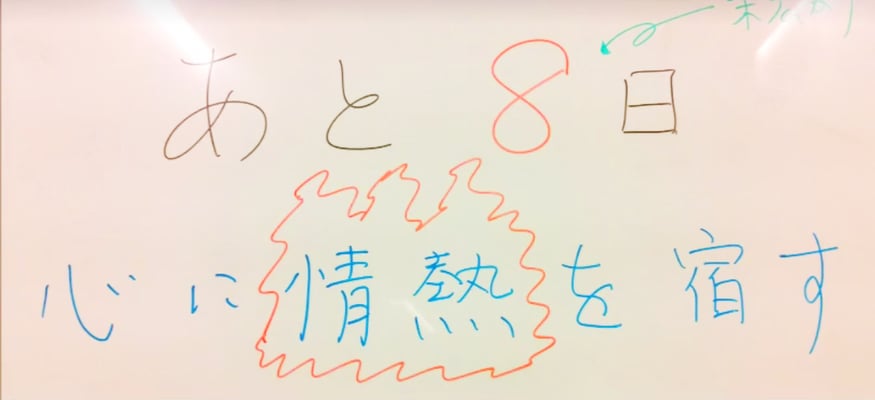 あと8日
心に情熱を宿す